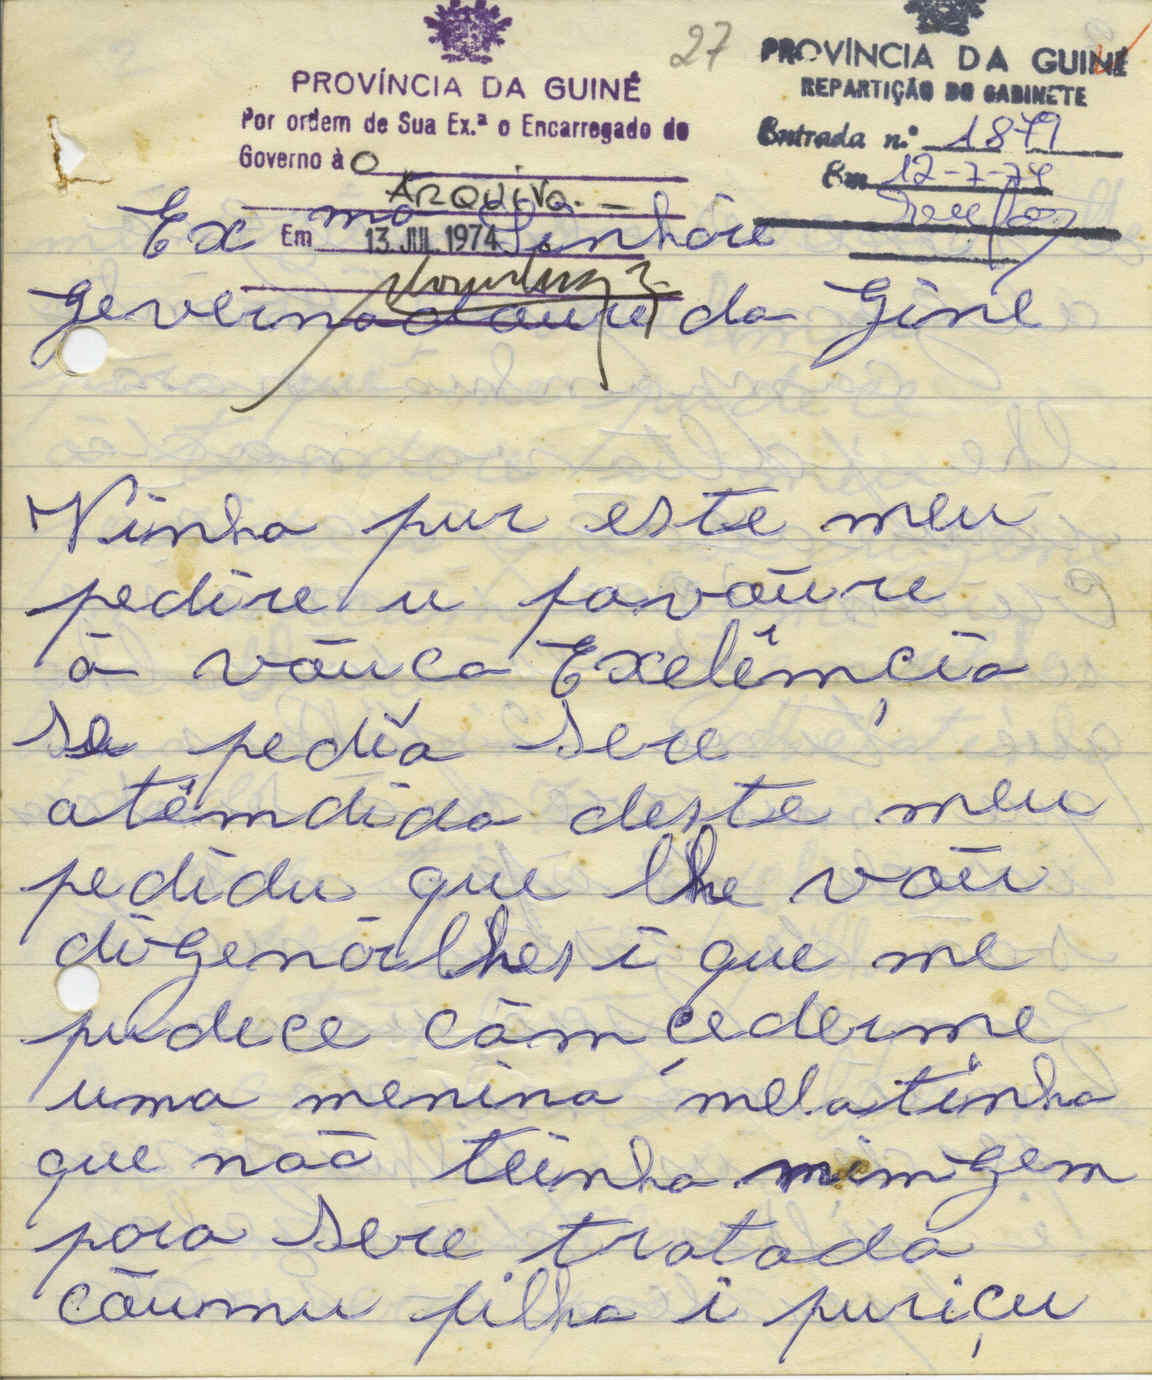 27
PROVÍNCIA DA GUINÉ
Por ordem de Sua Ex.ª o Encarregado do
Governo à O
ARQUIVO.—
Em 13 JUL. 1974
PROVÍNCIA DA GUINÉ
REPARTIÇÃO DO GABINETE
Entrada n.º 1879
Em 12-7-74
Ex mo Senhôre
Gevernadoure da Giné
Vinha pur este meu
pedire u favoūre
á vōuca Exelêmçia
se pedia sere
atêmdida deste meu
pedidu que lhe vōu
digenárlhes i que me
pudece cōmçederme
uma menina melatinha
que nāo teinha nimgem
para sere tratada
cōumu filha i puriçu